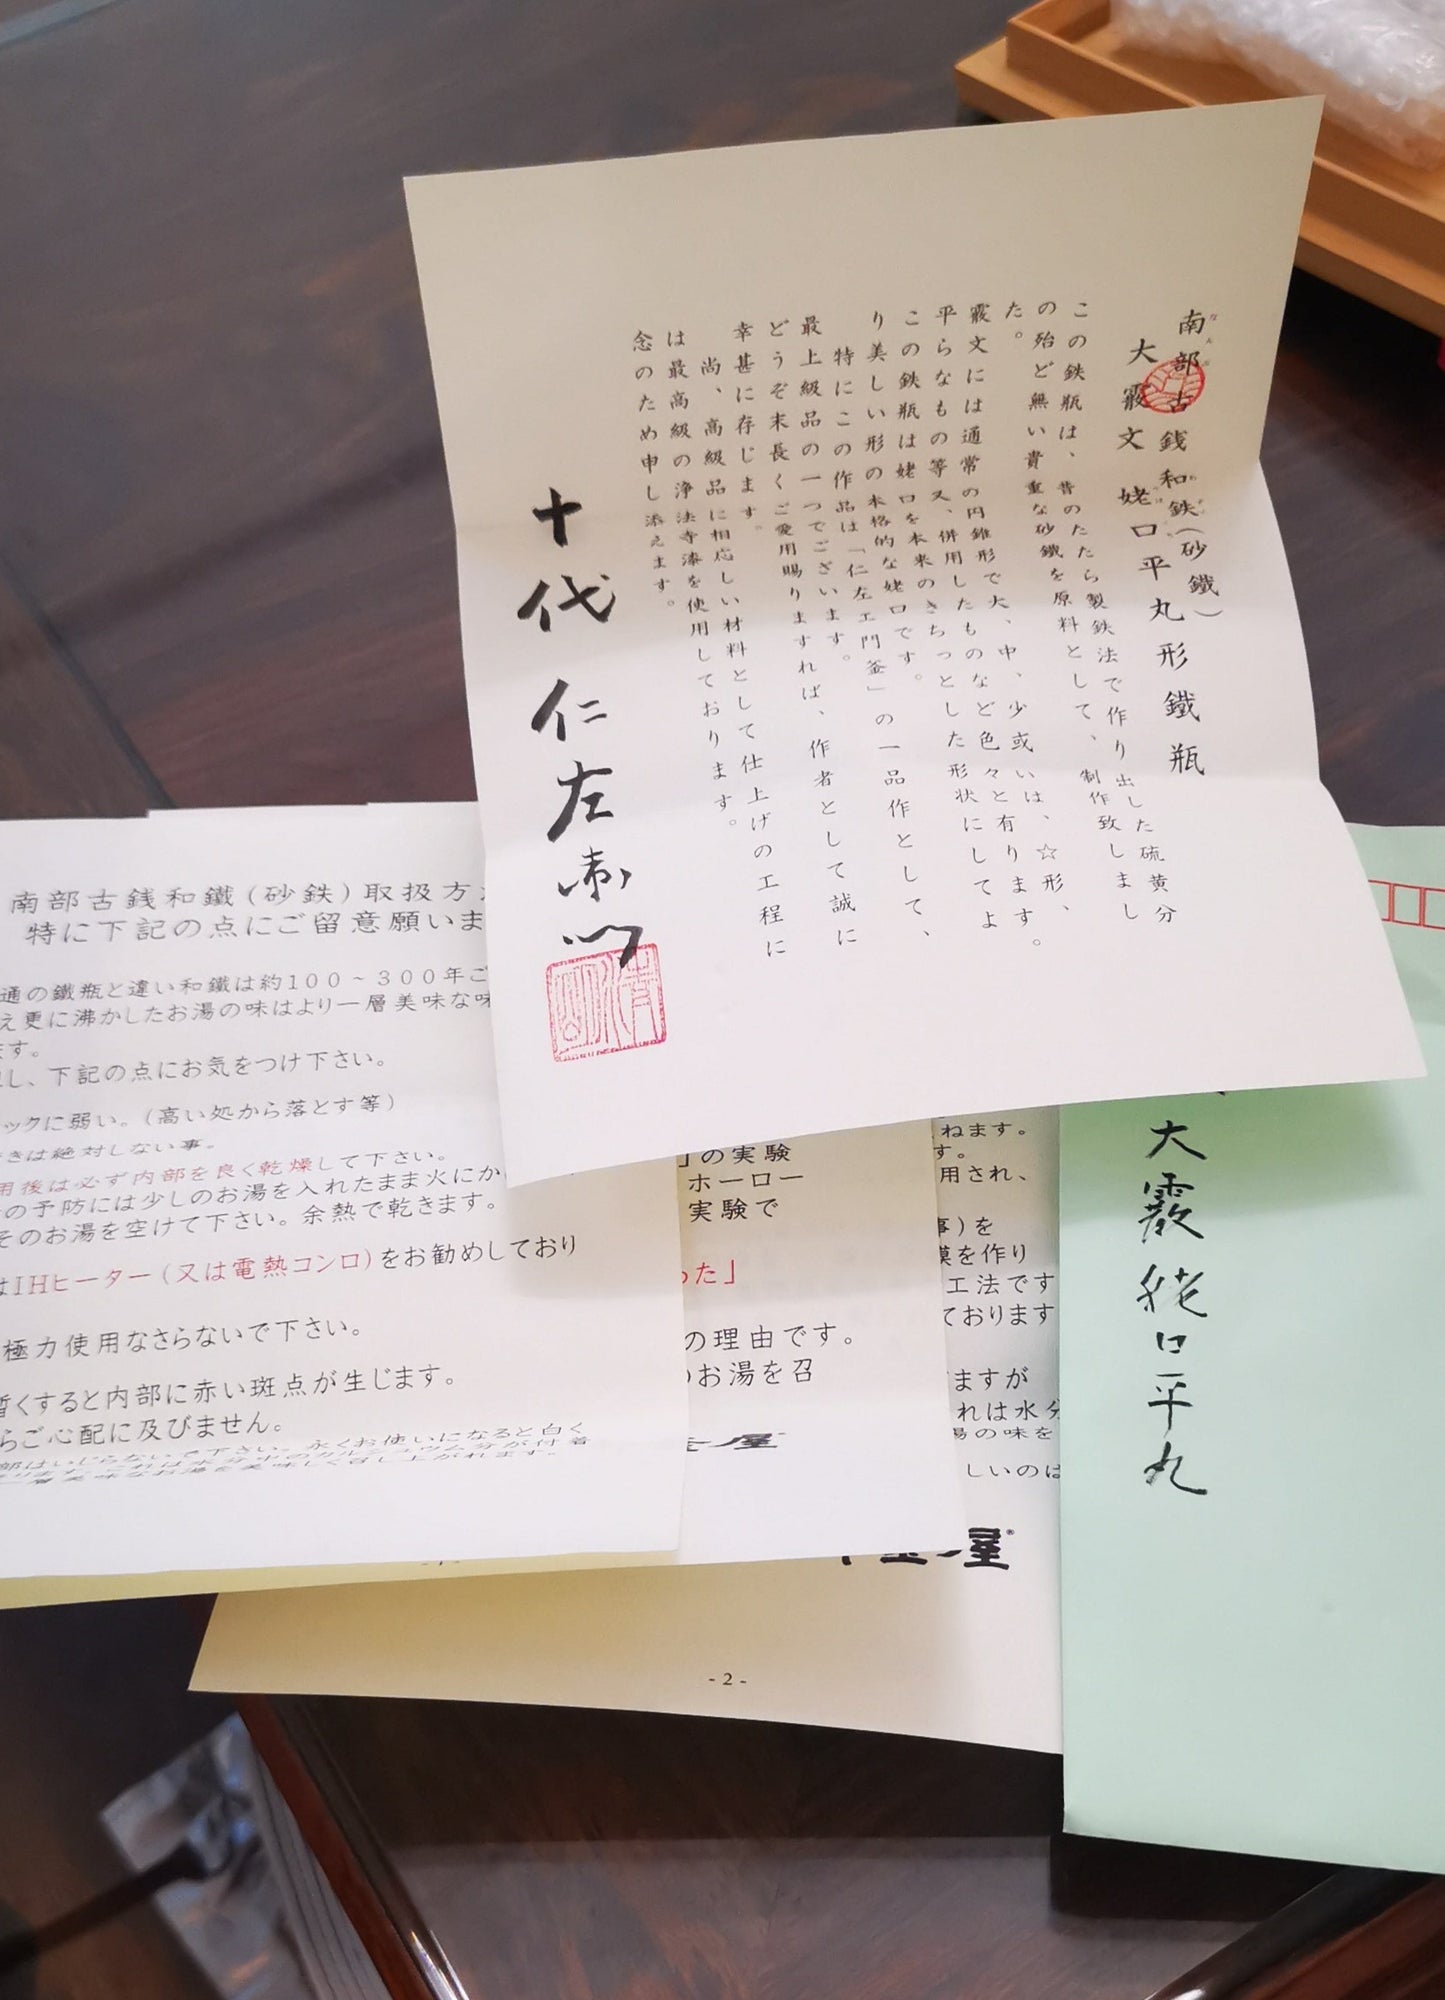 南部古銭和鉄(砂鐵)
大霰文姥口平丸形鐵瓶
この鉄瓶は、昔のたたら製鉄法で作り出した硫黄分
の殆ど無い貴重な砂鐵を原料として、制作致しまし
た。
霰文には通常の円錐形で大、中、少或いは、☆形、
平らなもの等又、併用したものなど色々と有ります。
この鉄瓶は姥口を本来のきちっとした形状にしてよ
り美しい形の本格的な姥口です。
特にこの作品は「仁左エ門釜」の一品作として、
最上級品の一つでございます。
どうぞ末長くご愛用賜りますれば、作者として誠に
幸甚に存じます。
尚、高級品に相応しい材料として仕上げの工程に
は最高級の浄法寺漆を使用しております。
念のため申し添えます。
十代 仁左衛門
南部古銭和鐵(砂鉄)取扱方
特に下記の点にご留意願いま
通の鐵瓶と違い和鐵は約100~300年ご
え更に沸かしたお湯の味はより一層美味な味
ます。
し、下記の点にお気をつけ下さい。
ックに弱い。(高い処から落とす等)
きは絶対しない事。
用後は必ず内部を良く乾燥して下さい。
の予防には少しのお湯を入れたまま火にか
そのお湯を空けて下さい。余熱で乾きます。
はIHヒーター(又は電熱コンロ)をお勧めしており
極力使用なさらないで下さい。
暫くすると内部に赤い斑点が生じます。
らご心配に及びません。
部はいじらないで下さい。永くお使いになると白く
」の実験
ホーロー
実験で
った」
の理由です。
のお湯を召
屋
ねます。
す。
用され、
事)を
膜を作り
工法です
ております
ますが
れは水分
湯の味を
しいのは
屋
- 2 -
大霰姥口平丸